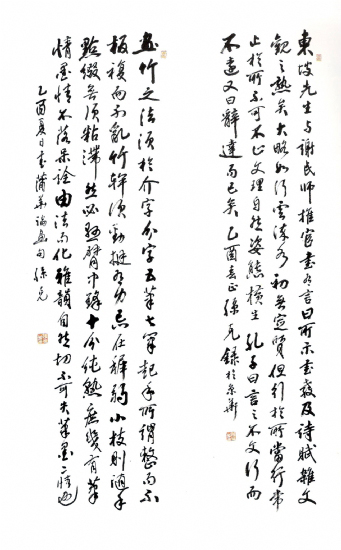 東坡先生与謝民師推官書有言曰所示書教及詩賦雜文
觀之熟矣大略如行雲流水初無定質但行於所當行常
止於所不可不止文理自然姿態橫生孔子曰言之不文行而
不遠又曰辭達而已矣乙酉春正孫克錄於京華
畫竹之法須於介字个字五筆七筆起手所謂整而不
板複而不亂竹幹須勁挺有力忌在稚弱小枝則隨手
點綴無須粘滯然必懸臂中鋒十分純熟庶幾有筆
情墨情不落呆詮由法而化雅韻自然切不可失筆墨二情也
乙酉夏日書蒲華論畫句孫克